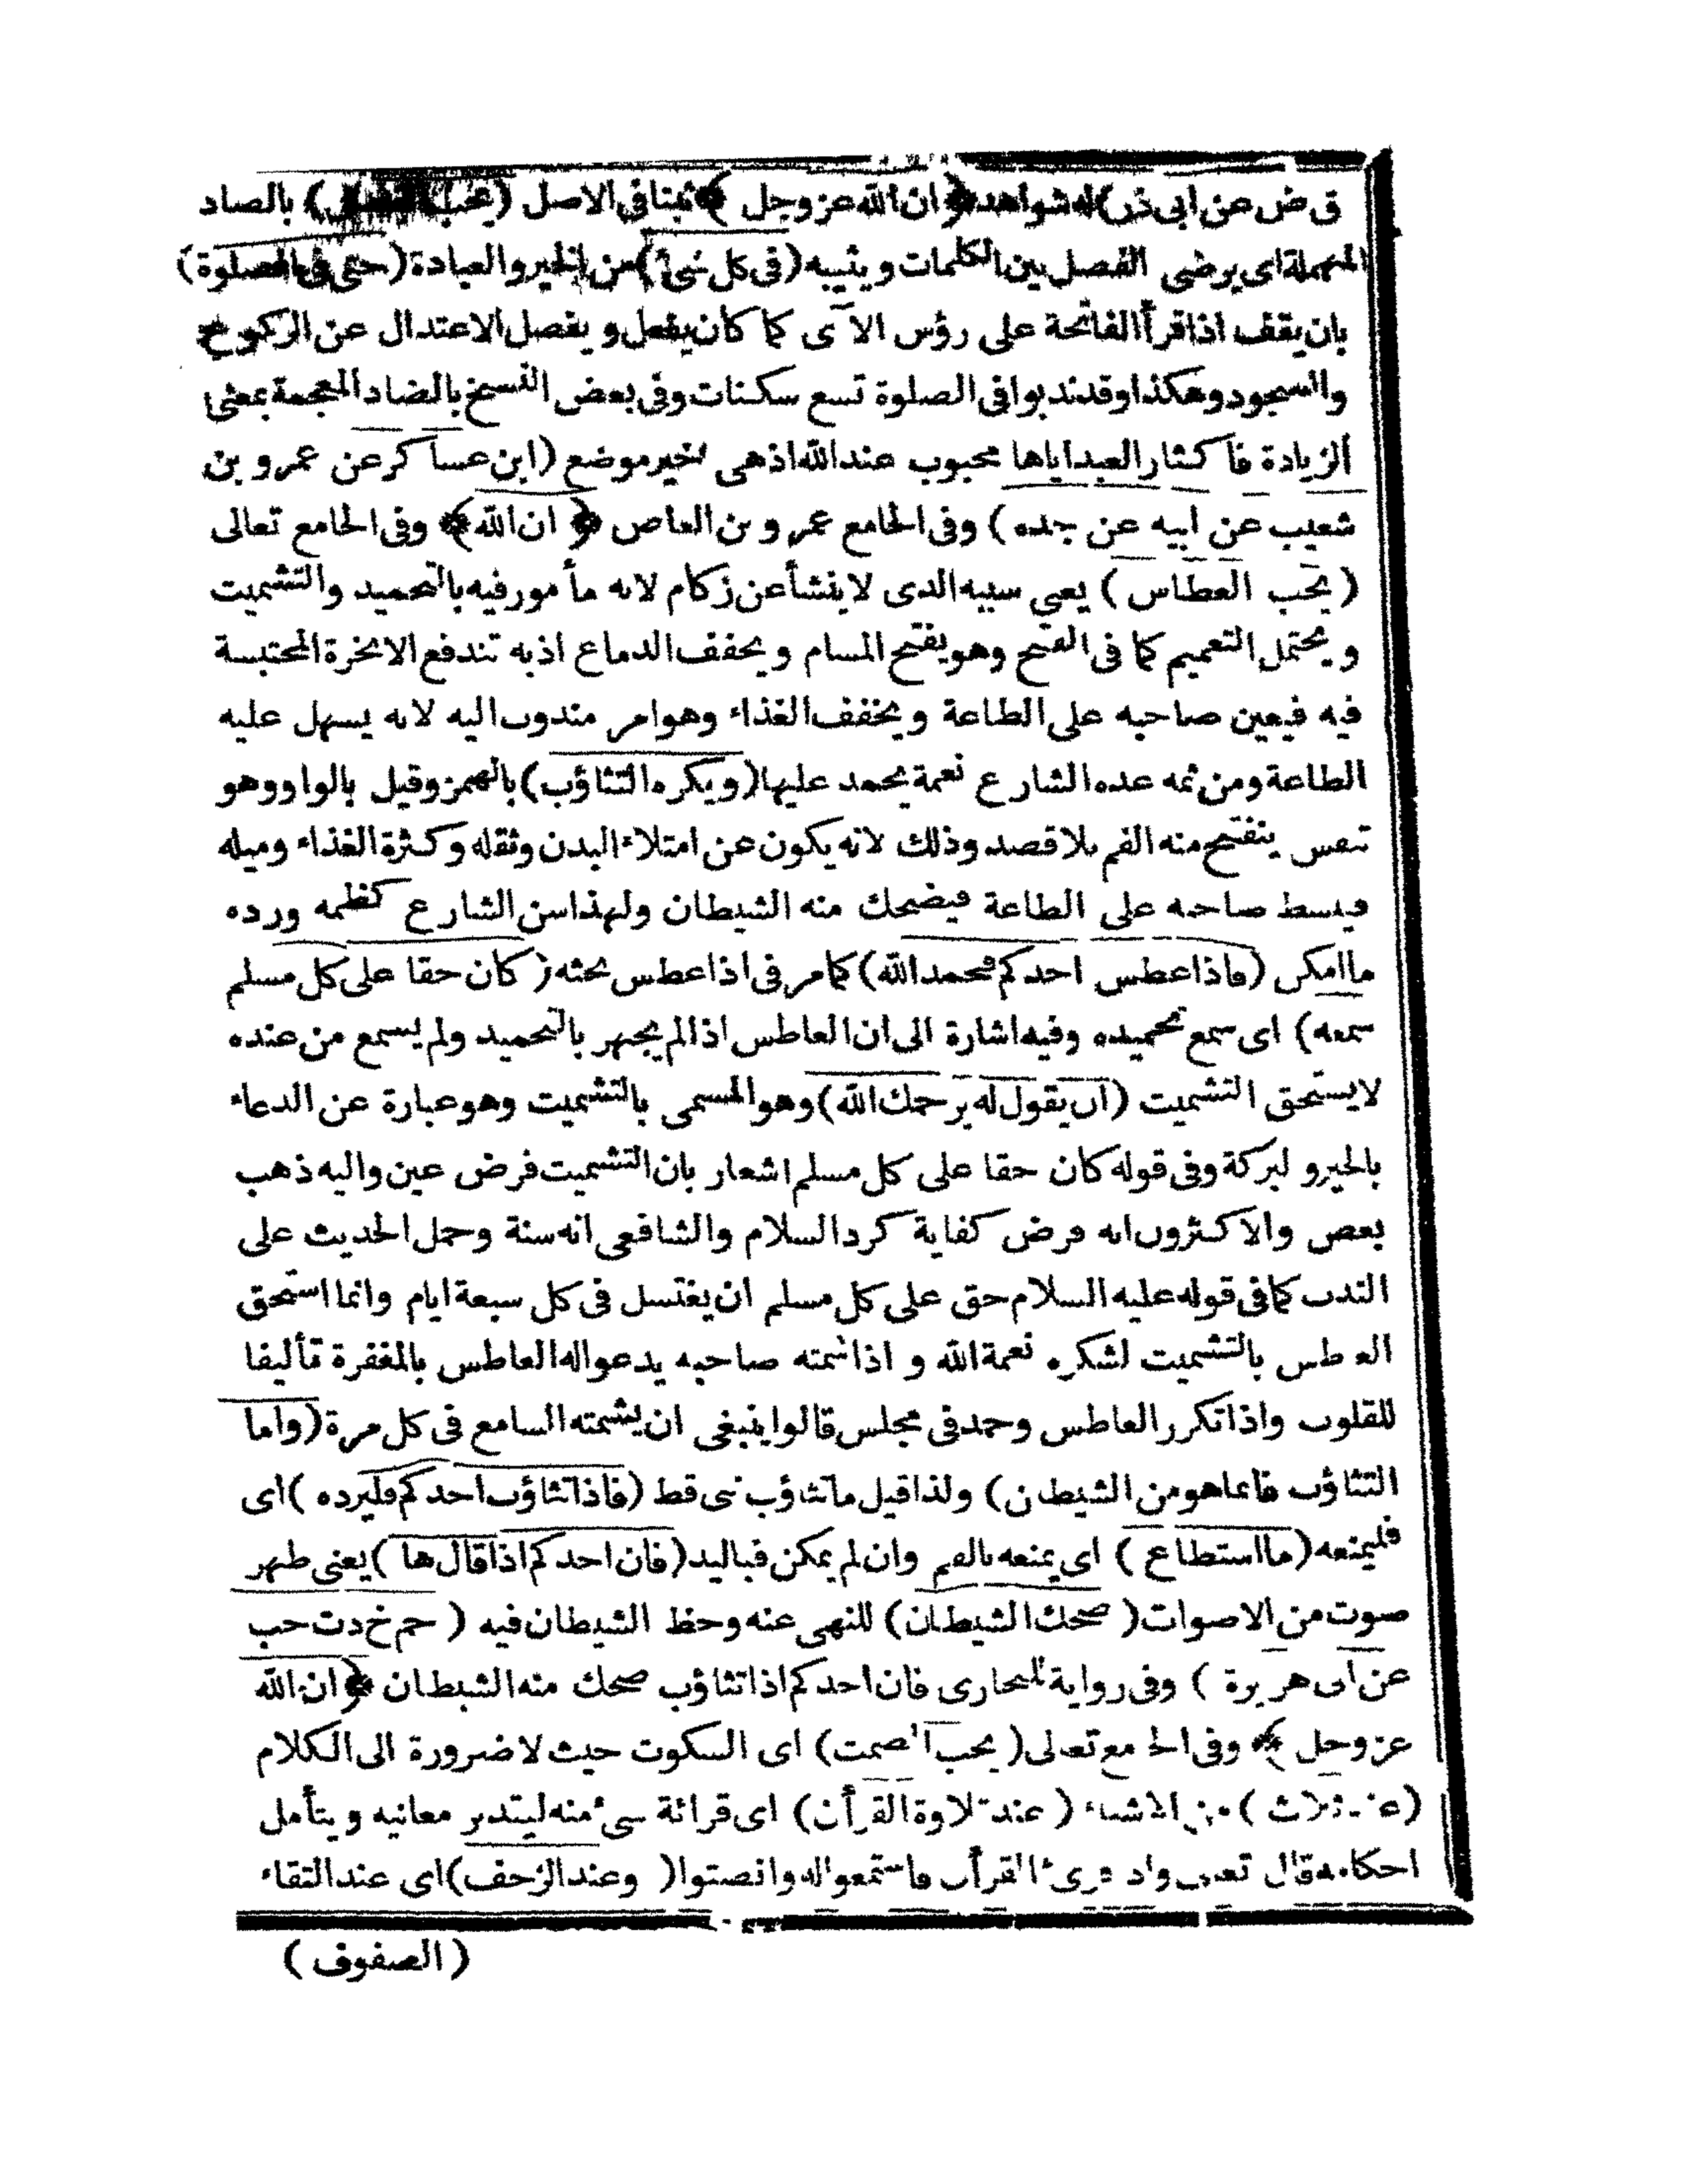 ق ض عن ابى ذر) له شواهد ﴿ ان الله عز وجل ﴾ ثبتا فى الاصل (يحب الفصل) بالصاد
المهملة اى يرضى الفصل بين الكلمات ويثيبه (فى كل شئ) من الخير والعبادة (حتى فى الصلوة)
بان يقف اذا قرأ الفاتحة على رؤس الآى كما كان يفعل ويفصل الاعتدال عن الركوع
والسجود وهكذا وقد ندبوا فى الصلوة تسع سكتات وفى بعض النسخ بالضاد المعجمة بمعنى
الزيادة فاكثار العبد اياها محبوب عند الله اذ هى خير موضع (ابن عساكر عن عمرو بن
شعيب عن ابيه عن جده) وفى الجامع عمرو بن العاص ﴿ ان الله ﴾ وفى الجامع تعالى
(يحب العطاس) يعنى سببه الذى لا ينشأ عن زكام لانه مأمور فيه بالتحميد والتشميت
ويحتمل التعميم كما فى الفتح وهو يفتح المسام ويخفف الدماغ اذ به تندفع الابخرة المحتبسة
فيه فيعين صاحبه على الطاعة ويخفف الغذاء وهو امر مندوب اليه لانه يسهل عليه
الطاعة ومن ثمه عده الشارع نعمة يحمد عليها (ويكره التثاؤب) بالهمز وقيل بالواو وهو
تنفس ينفتح منه الفم بلا قصد وذلك لانه يكون عن امتلاء البدن وثقله وكثرة الغذاء وميله
صاحبه على الطاعة فيضحك منه الشيطان ولهذا سن الشارع كظمه ورده
ما امكن (فاذا عطس احدكم فحمد الله) كما مر فى اذا عطس بحثه (كان حقا على كل مسلم
سمعه) اى سمع تحميده وفيه اشارة الى ان العاطس اذا لم يجهر بالتحميد ولم يسمع من عنده
لا يستحق التشميت (ان يقول له يرحمك الله) وهو المسمى بالتشميت وهو عبارة عن الدعاء
بالخير و لبركة وفى قوله كان حقا على كل مسلم اشعار بان التشميت فرض عين واليه ذهب
بعض والاكثرون انه فرض كفاية كرد السلام والشافعى انه سنة وحمل الحديث على
الندب كما فى قوله عليه السلام حق على كل مسلم ان يغتسل فى كل سبعة ايام وانما استحق
العطس بالتشميت لشكره نعمة الله و اذا شمته صاحبه يدعو اله العاطس بالمغفرة تأليفا
للقلوب واذا تكرر العاطس وحمد فى مجلس قالوا ينبغى ان يشمته السامع فى كل مرة (واما
التثاؤب فانما هو من الشيطن) ولذا قيل ما تثاؤب نبى قط (فاذا تثاؤب احدكم فليرده) اى
فليمنعه (ما استطاع) اى يمنعه بالفم وان لم يمكن فباليد (فان احدكم اذا قال ها) يعنى ظهر
صوت من الاصوات (ضحك الشيطان) للنهى عنه وحظ الشيطان فيه (حم خ د ت حب
عن ابى هريرة) وفى رواية للبخارى فان احدكم اذا تثاؤب ضحك منه الشيطان ﴿ ان الله
عز وجل ﴾ وفى الجامع تعالى (يحب الصمت) اى السكوت حيث لا ضرورة الى الكلام
(عند ثلاث) من الاشياء (عند تلاوة القرأن) اى قرائة شىء منه ليتدبر معانيه ويتأمل
احكامه قال تعالى واذا قرئ القرأن فاستمعوا له وانصتوا (وعند الزحف) اى عند التقاء
(الصفوف)